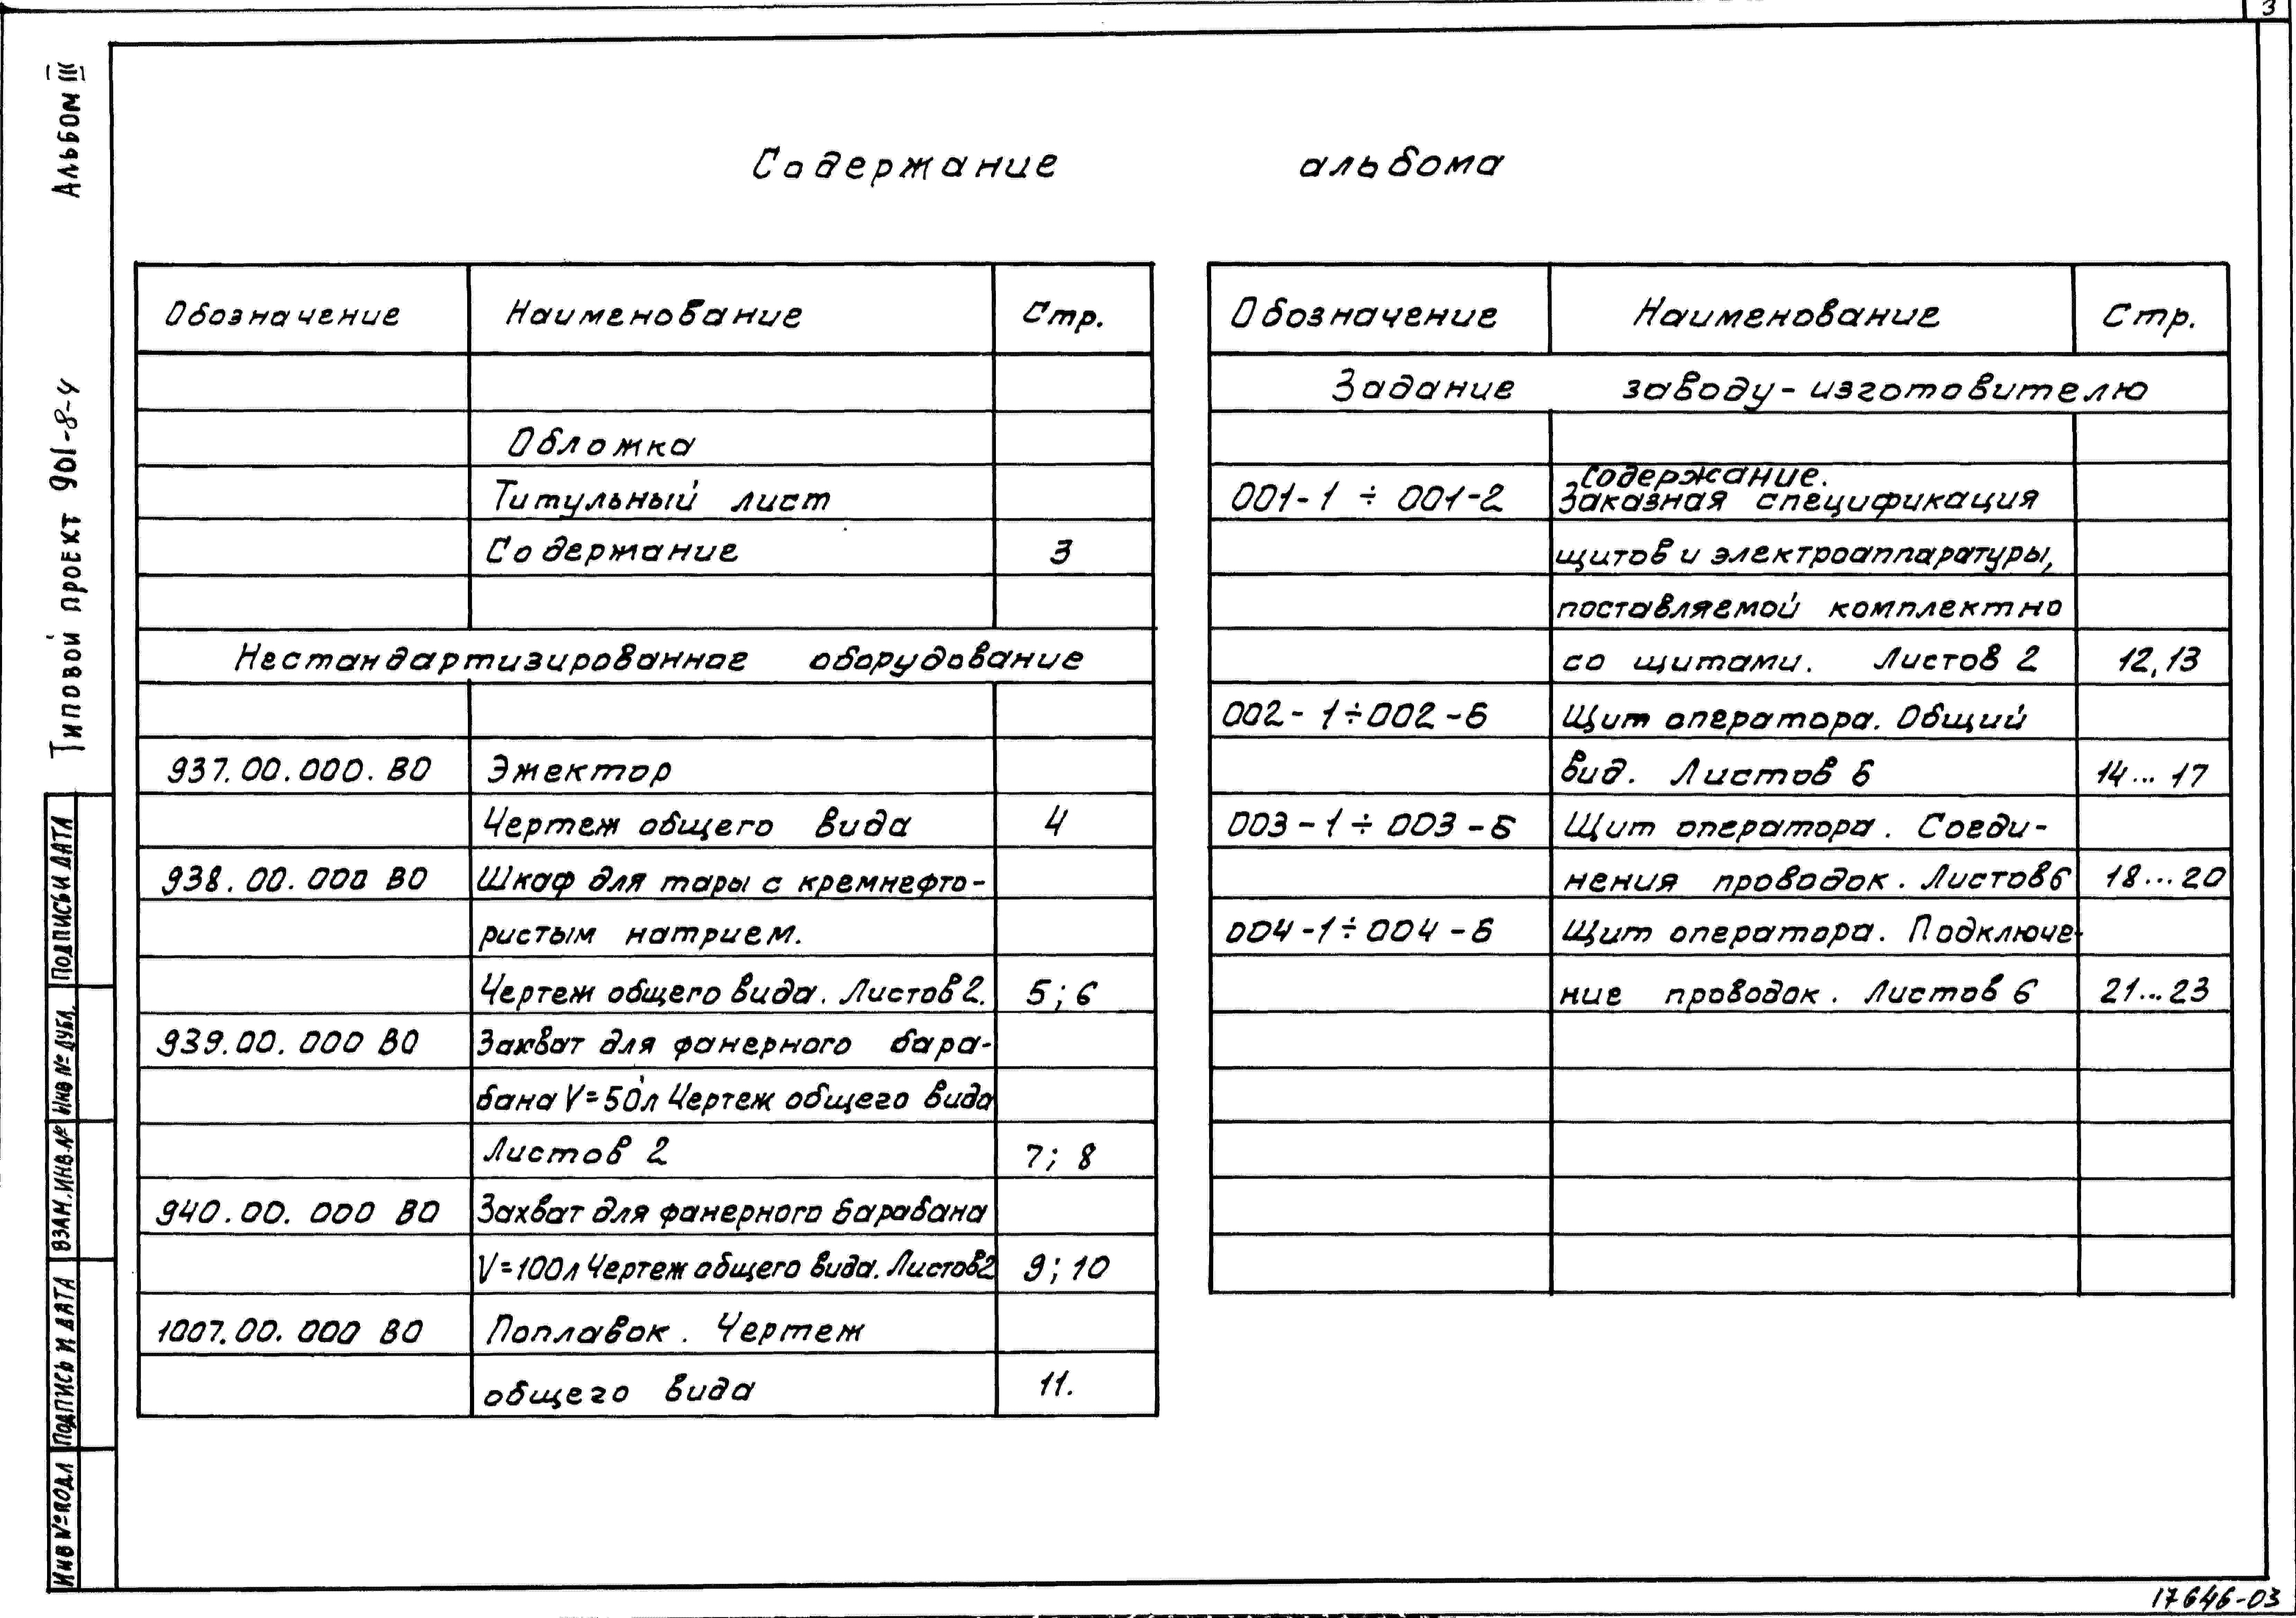 3
Альбом III
Типовой проект 901-8-4
Содержание альбома
Обозначение Наименование Стр.
Обложка
Титульный лист
Содержание 3
Нестандартизированное оборудование
937.00.000.ВО Эжектор
Чертеж общего вида 4
938.00.000 ВО Шкаф для тары с кремнефто-
ристым натрием.
Чертеж общего вида. Листов 2. 5; 6
939.00.000 ВО Захват для фанерного бара-
бана V=50л Чертеж общего вида
Листов 2 7; 8
940.00.000 ВО Захват для фанерного барабана
V=100л Чертеж общего вида. Листов 2 9; 10
1007.00.000 ВО Поплавок. Чертеж
общего вида 11.
Обозначение Наименование Стр.
Задание заводу-изготовителю
Содержание.
001-1 ÷ 001-2 Заказная спецификация
щитов и электроаппаратуры,
поставляемой комплектно
со щитами. Листов 2 12,13
002-1÷002-6 Щит оператора. Общий
вид. Листов 6 14...17
003-1÷003-6 Щит оператора. Соеди-
нения проводок. Листов 6 18...20
004-1÷004-6 Щит оператора. Подключе-
ние проводок. Листов 6 21...23
Подпись и дата
Инв № дубл.
Взам. инв. №
Подпись и дата
Инв № подл
17646-03